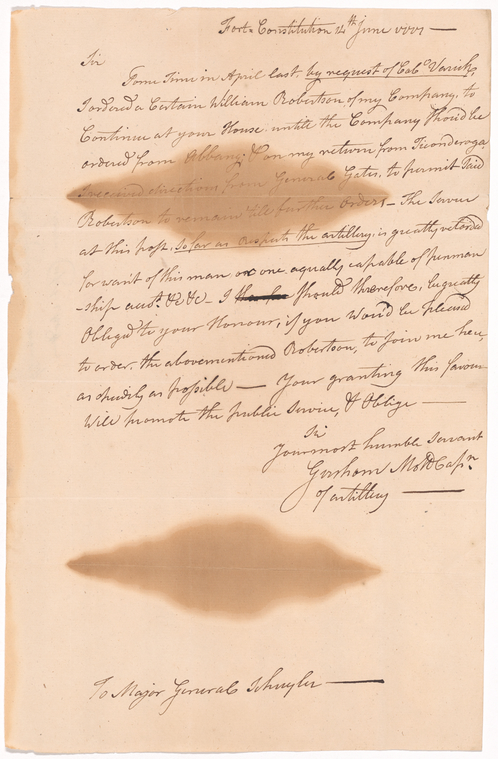 Fort Constitution 14th June 1777 —
Sir
Some Time in April last, by request of Capt. Varick,
I ordered a Certain William Robertson of my Company, to
Continue at your House, untill the Company should be
ordered from Albany; & on my return from Ticonderoga
I received directions from General Gates, to permit Said
Robertson to remain till further orders — The Service
at this post, So far as respects the artillery, is greatly retarded
for want of this man or one equally capable of penman
-ship &c &c — I should therefore, be greatly
Obliged to your Honour, if you would be pleased
to order, the abovementioned Robertson, to join me here,
as speedily as possible — Your granting this favour
Will promote the public Service, & Oblige —
Sir
Your most humble Servant
Gershom Mott Capn.
of artillery —
To Major General Schuyler —